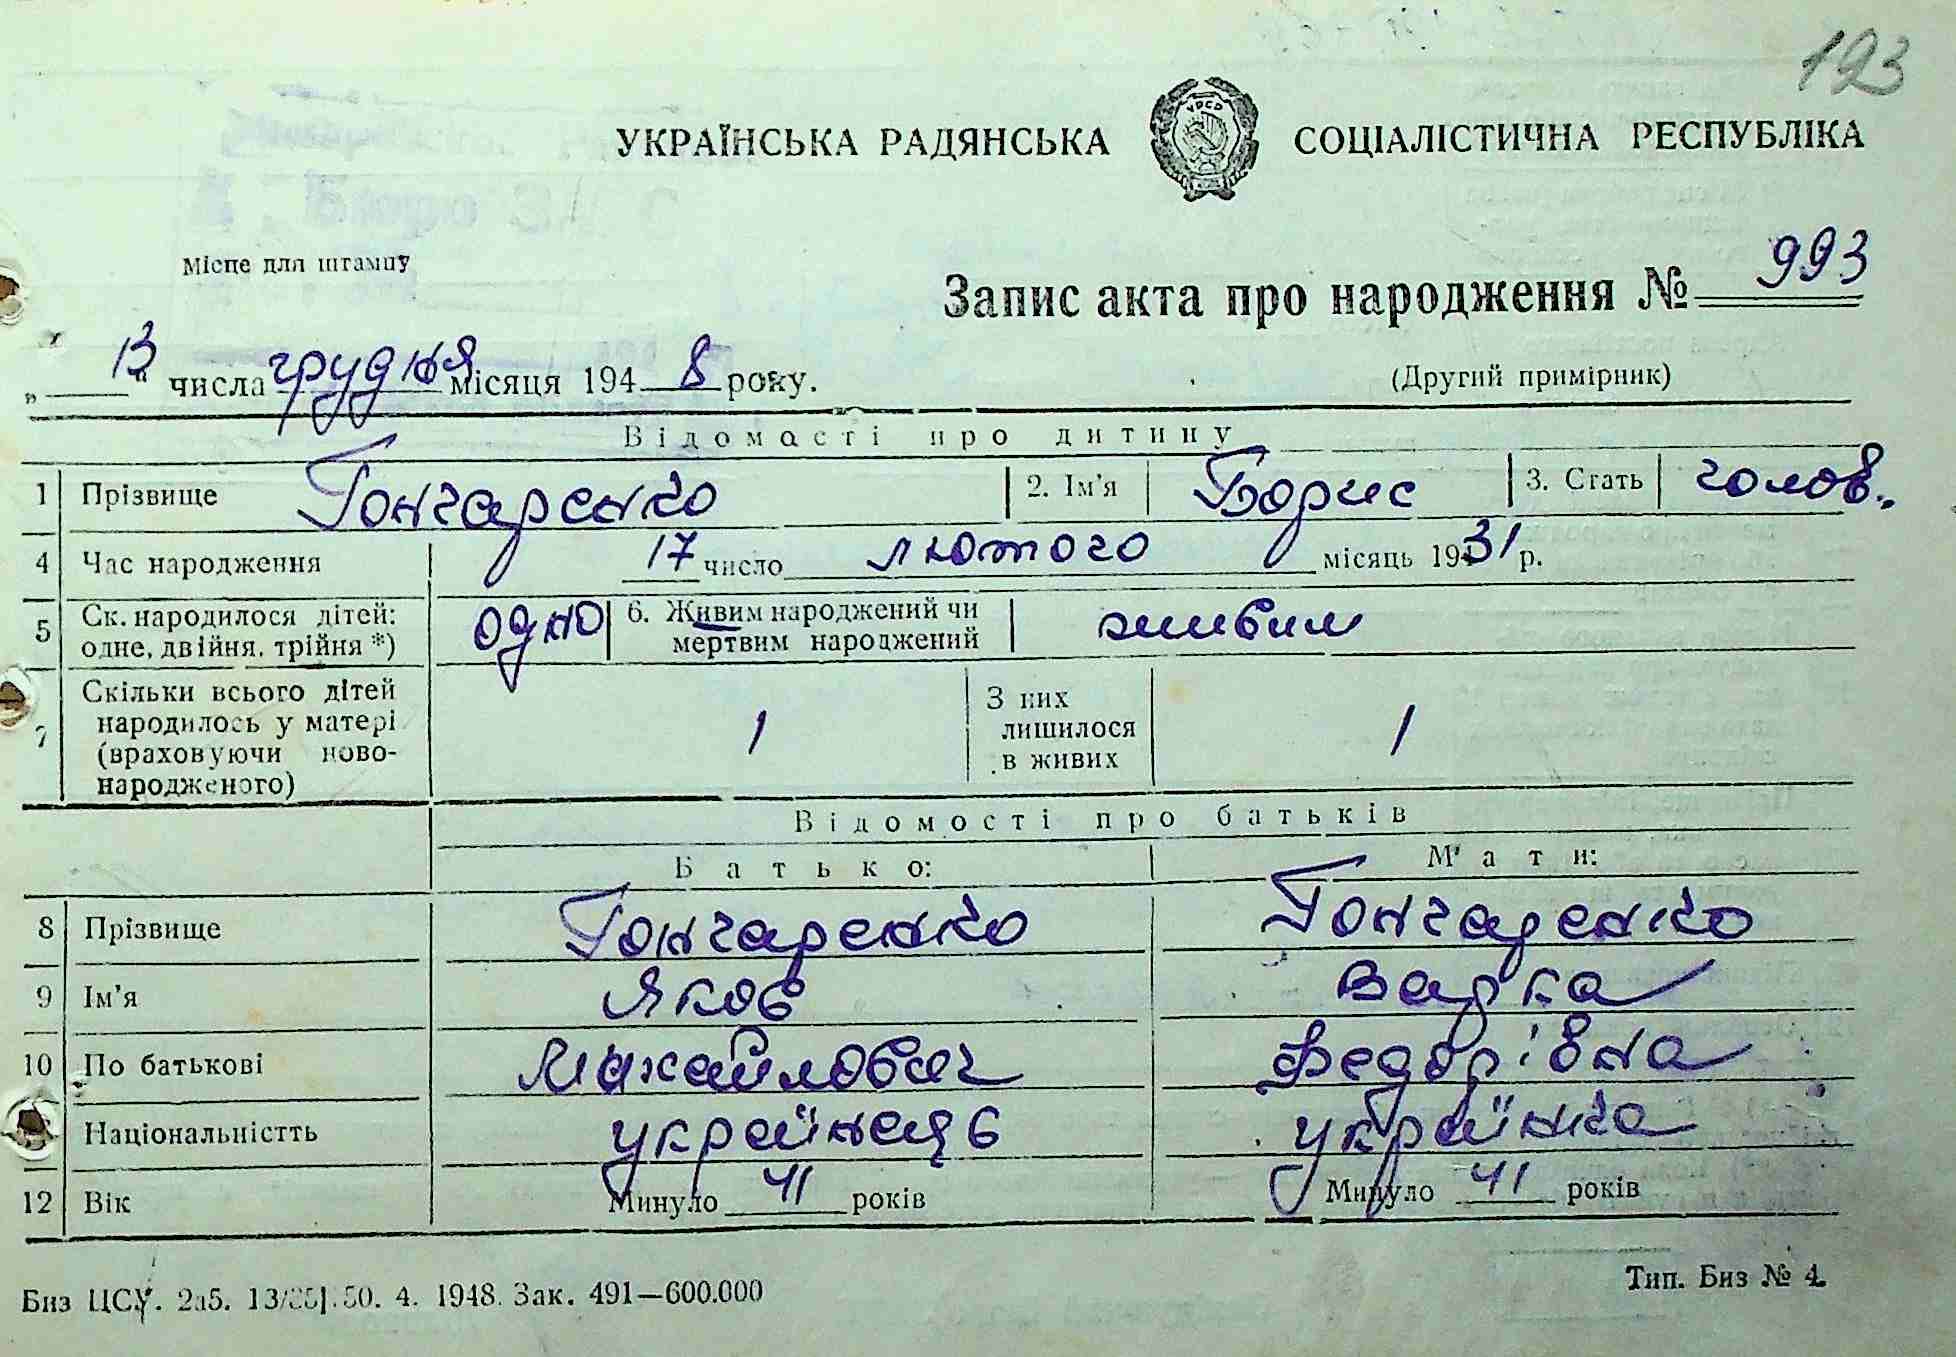 193
УКРАЇНСЬКА РАДЯНСЬКА СОЦІАЛІСТИЧНА РЕСПУБЛІКА
УРСР
Місце для штампу
Запис акта про народження № 993
„ 13 “ числа грудня місяця 1948 року.
(Другий примірник)
Відомасті про дитину
1 Прізвище Гончаренко 2. Ім'я Борис 3. Стать чолов.
4 Час народження 17 число лютого місяць 1931 р.
5 Ск. народилося дітей: одно 6. Живим народжений чи живим
одне, двійня, трійня *) мертвим народжений
7 Скільки всього дітей З них
народилось у матері 1 лишилося 1
(враховуючи ново- в живих
народженого)
Відомості про батьків
Батько: Мати:
8 Прізвище Гончаренко Гончаренко
9 Ім'я Яков Варка
10 По батькові Михайлович Федорівна
Національністть українець українка
12 Вік Минуло 41 років Минуло 41 років
Биз ЦСУ. 2а5. 4. 1948. Зак. 491—600.000
Тип. Биз № 4.